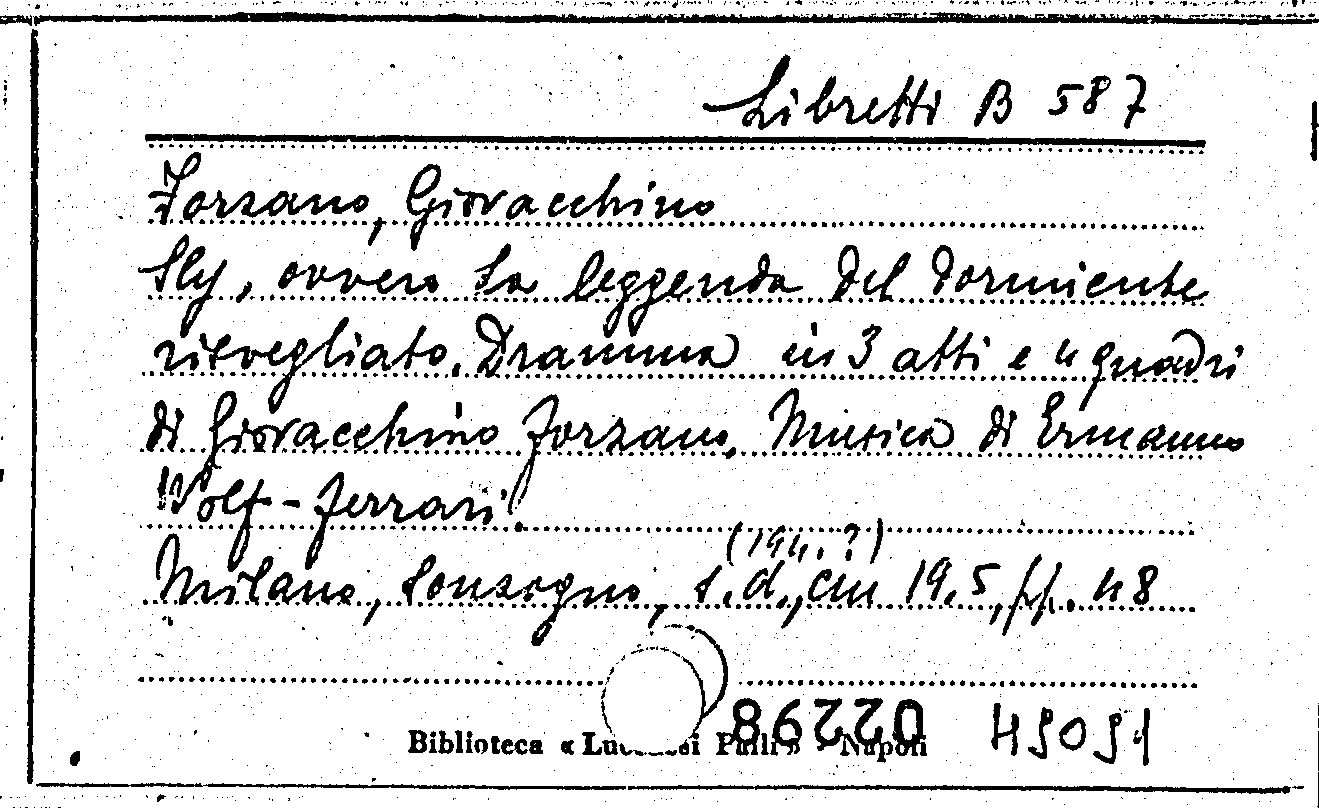 Libretti B 587
Forzano, Giovacchino
Sly, ovvero La leggenda del dormiente
risvegliato. Dramma in 3 atti e 4 quadri
di Giovacchino Forzano. Musica di Ermanno
Wolf-Ferrari.
(194.?)
Milano, Sonzogno, s.d., cm 19.5, pp. 48
022298
Biblioteca « Lucchesi Palli » - Napoli